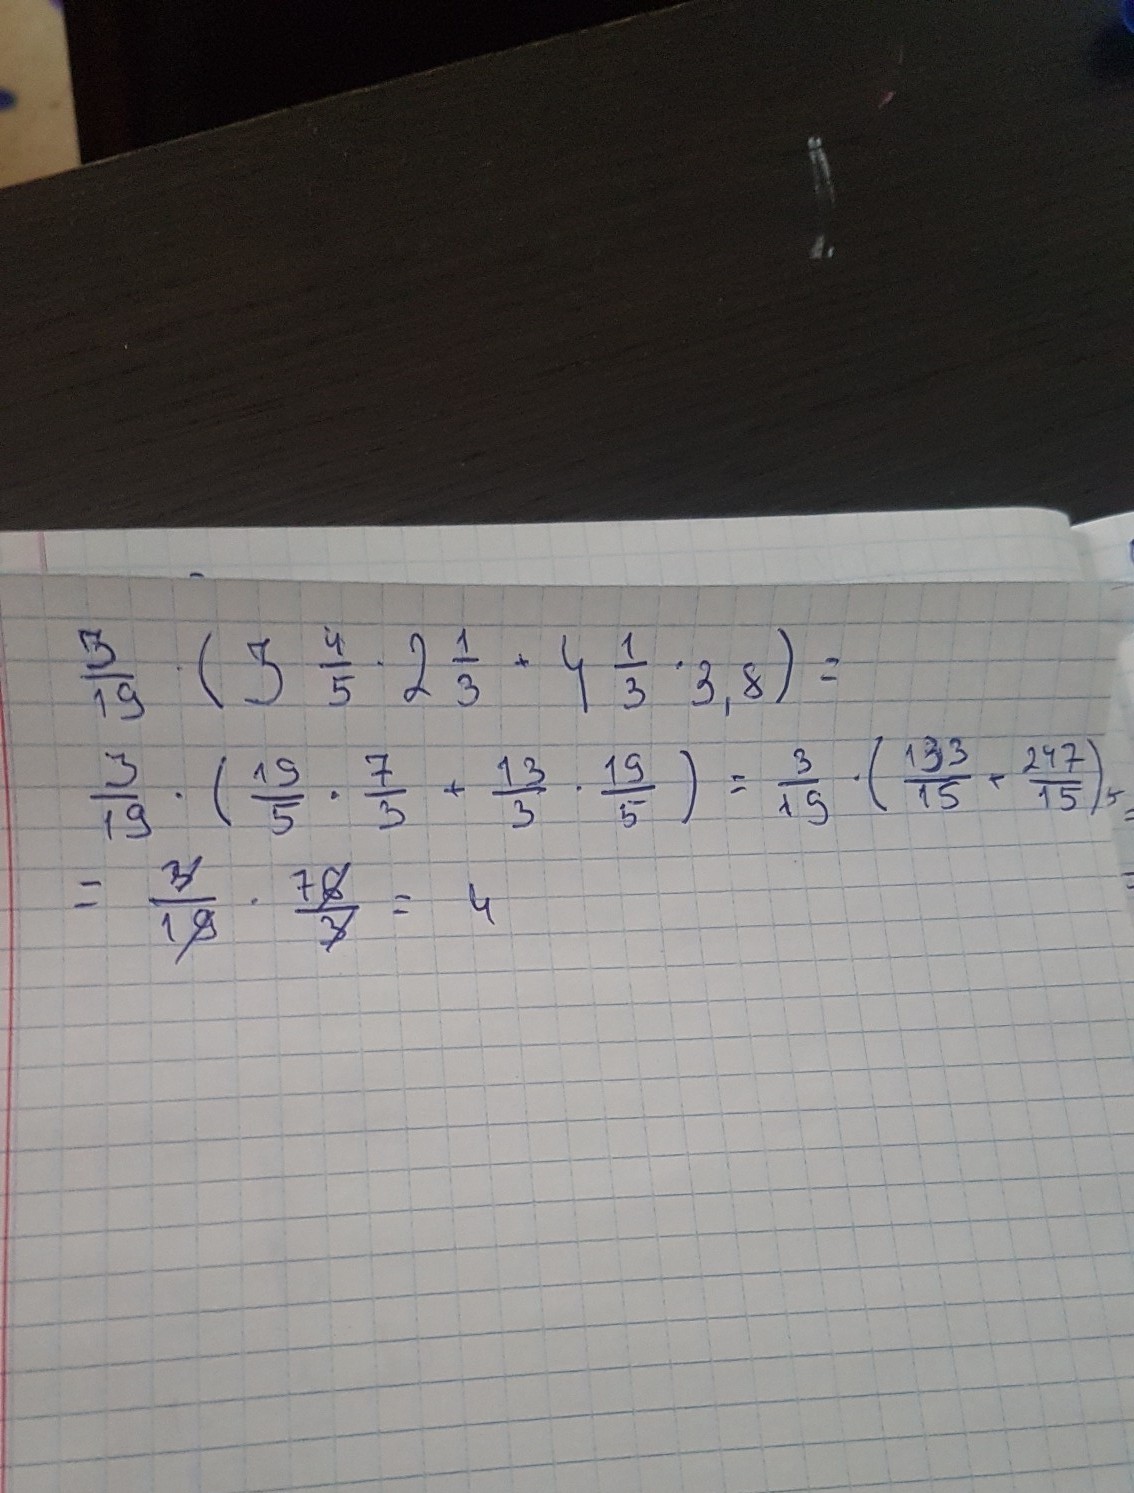 3/19 · (3 4/5 · 2 1/3 + 4 1/3 · 3,8) =
3/19 · (19/5 · 7/3 + 13/3 · 19/5) = 3/19 · (133/15 + 247/15) =
= 3/19 · 76/3 = 4